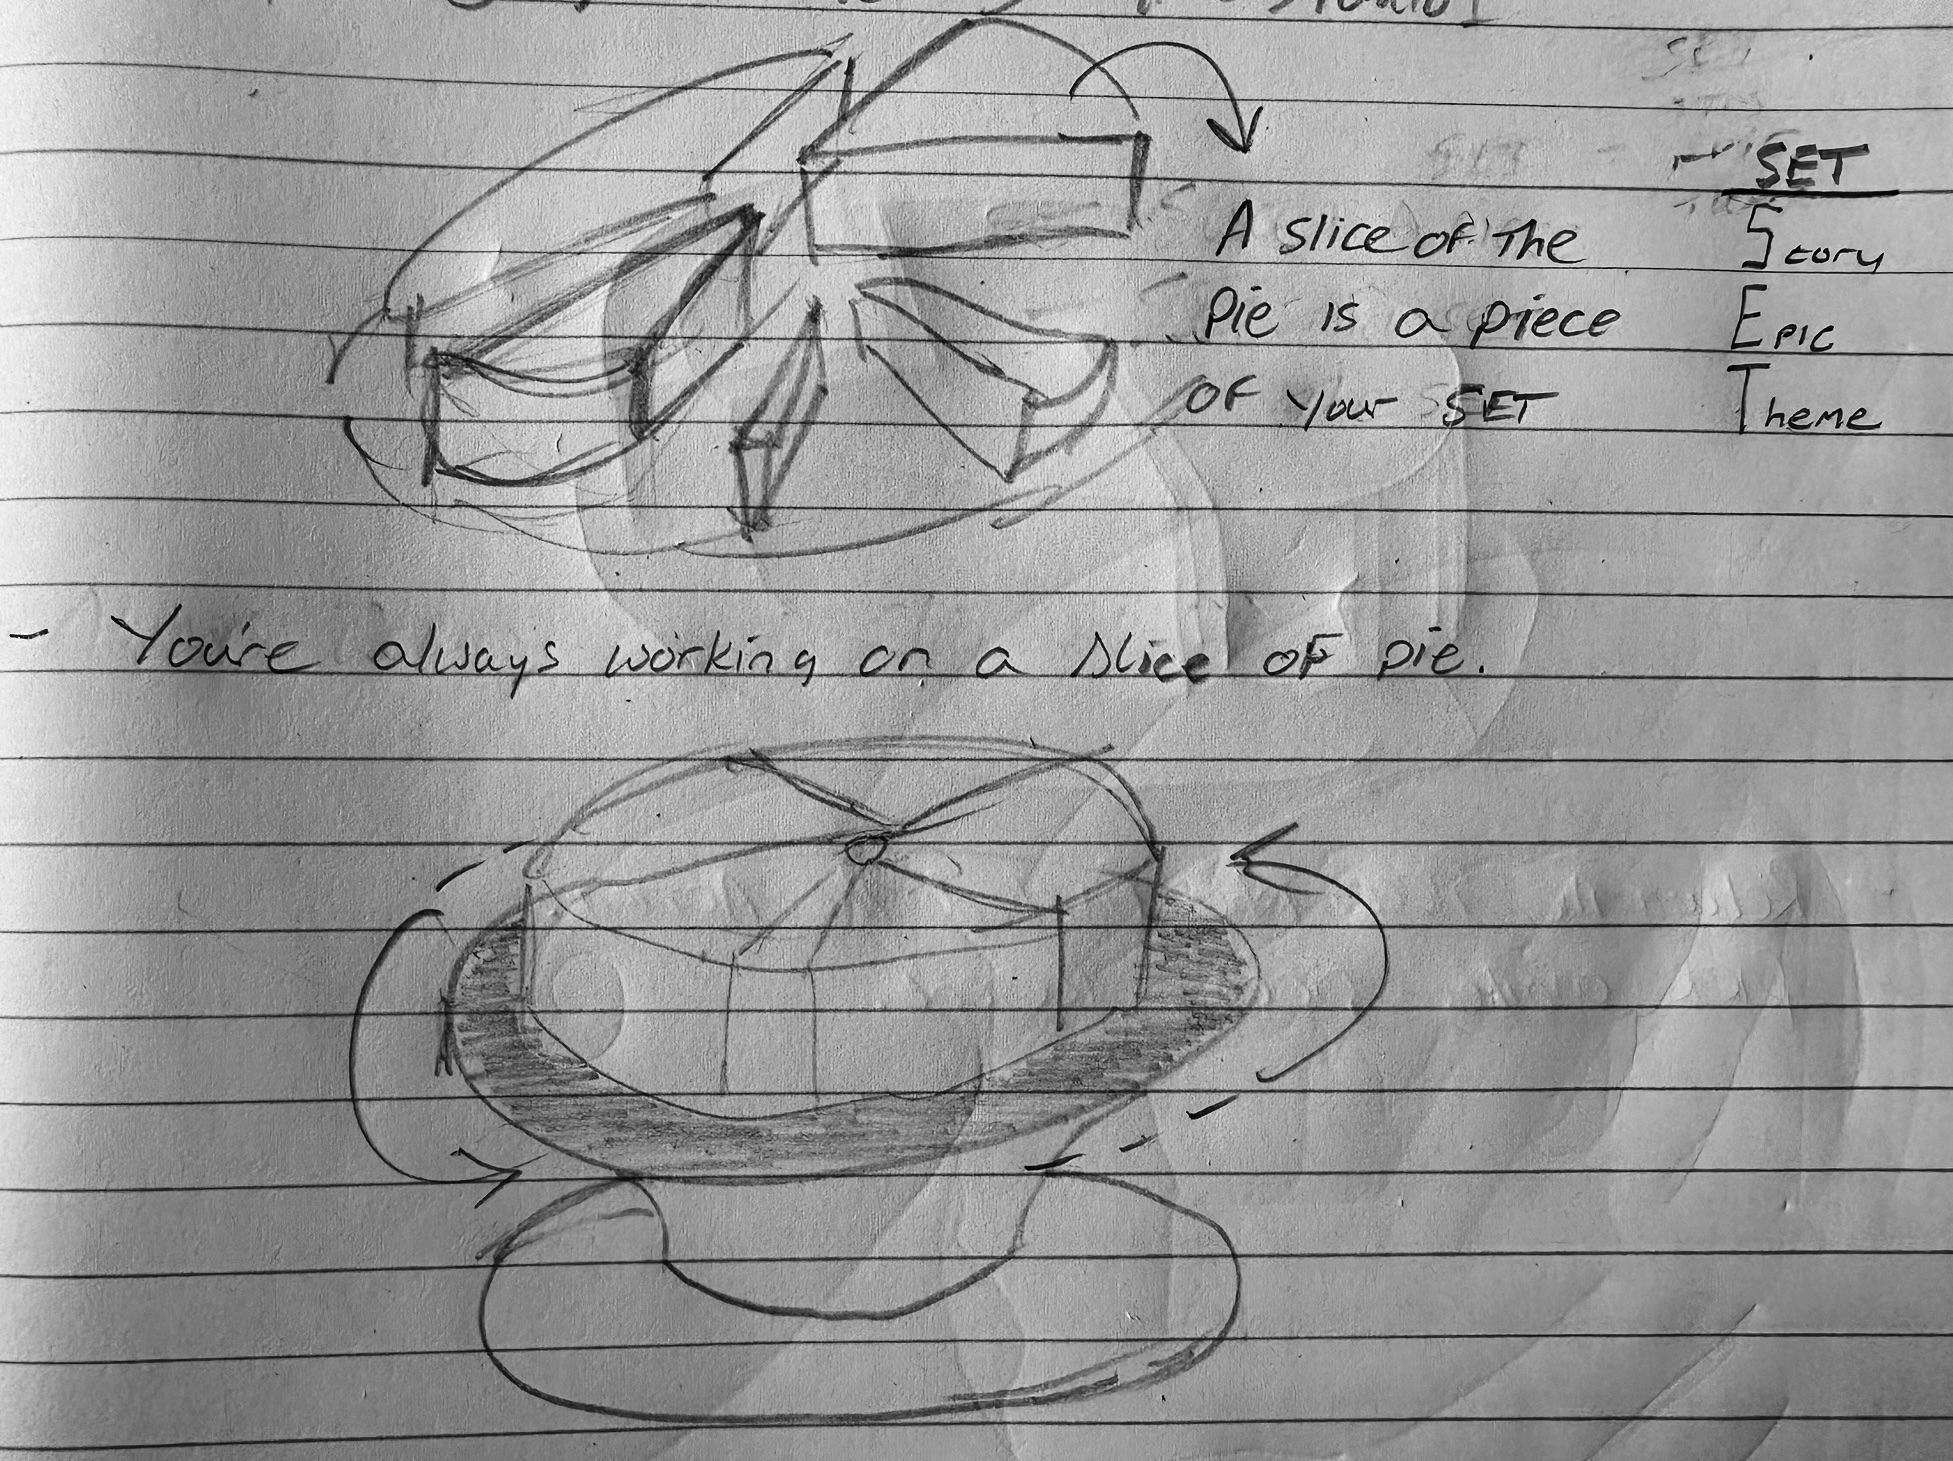 SET
A slice of The
Story
Pie is a piece
Epic
of your SET
Theme
- You're always working on a slice of pie.